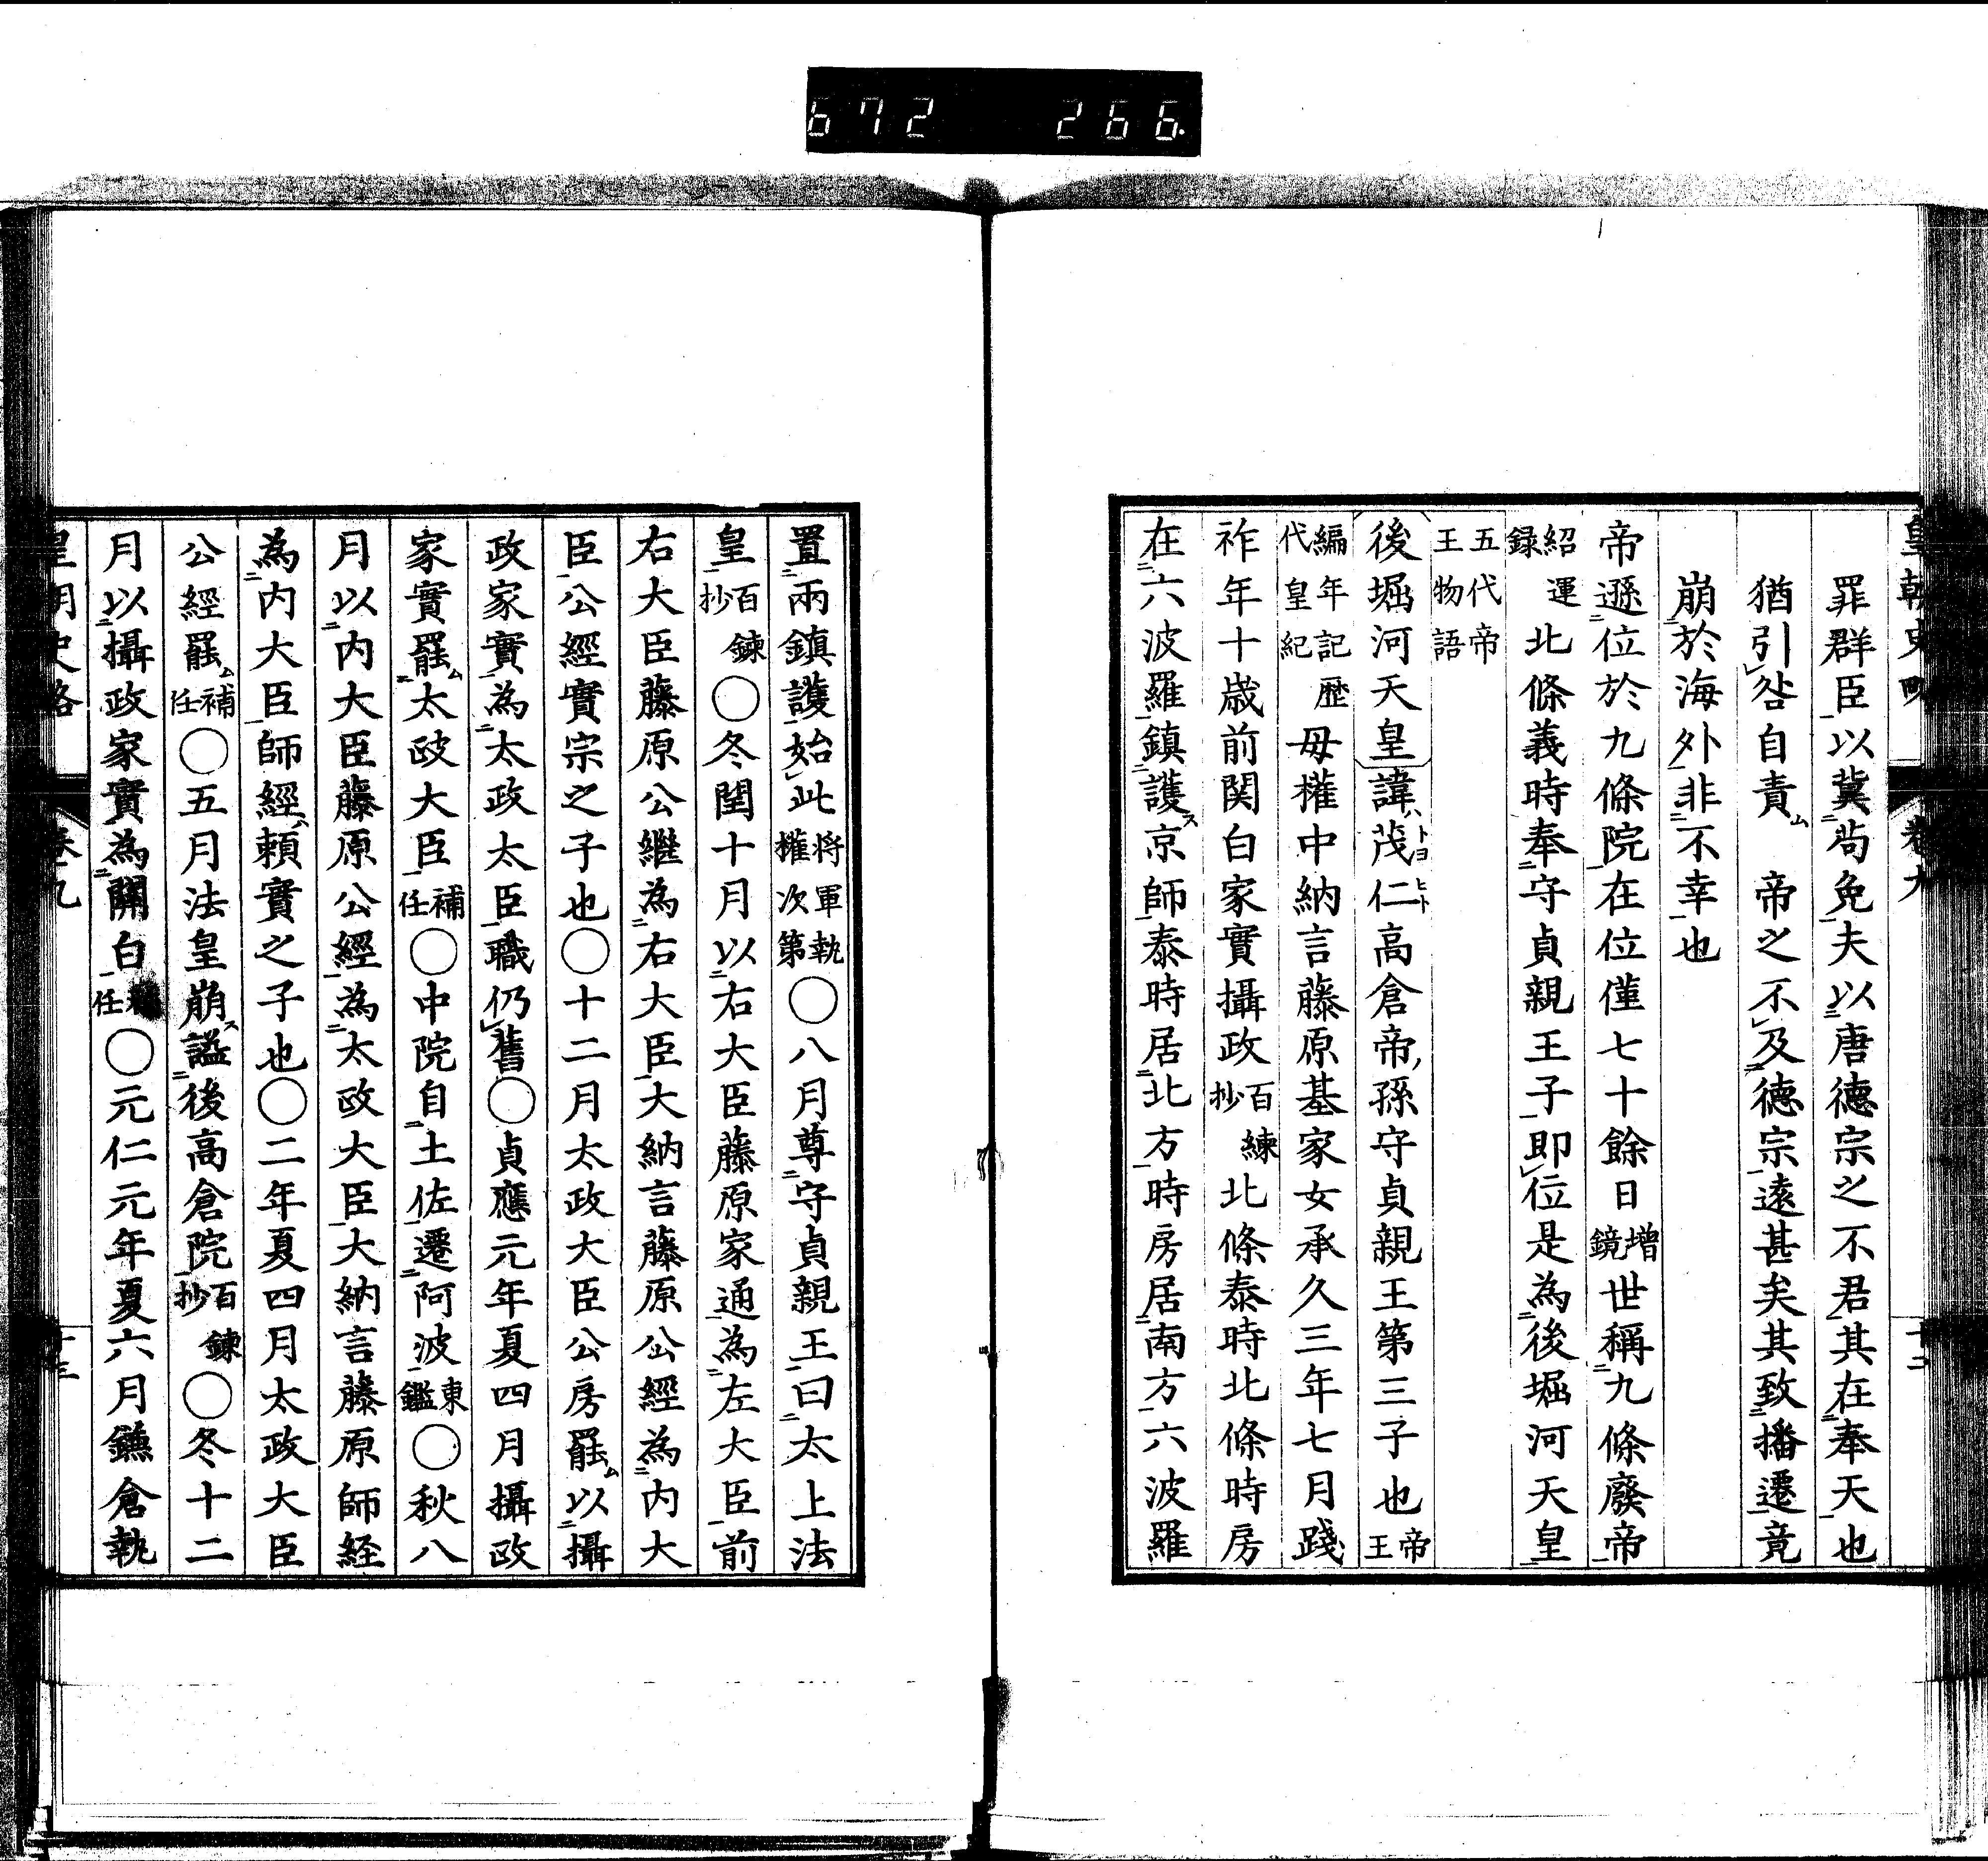 672 266
皇朝史略 卷九 十二
罪群臣以冀苟免夫以唐德宗之不君其在奉天也
猶引咎自責 帝之不及德宗遠甚矣其致播遷竟
崩於海外非不幸也
帝遜位於九條院在位僅七十餘日增鏡世稱九條廢帝
紹運録北條義時奉守貞親王子即位是為後堀河天皇
五代帝王物語
後堀河天皇諱茂仁高倉帝孫守貞親王第三子也帝王
編年記歷代皇紀母權中納言藤原基家女承久三年七月踐
祚年十歲前関白家實攝政百練抄北條泰時北條時房
在六波羅鎮護京師泰時居北方時房居南方六波羅
置兩鎮護始此將軍執權次第〇八月尊守貞親王曰太上法
皇百鍊抄〇冬閏十月以右大臣藤原家通為左大臣前
右大臣藤原公繼為右大臣大納言藤原公經為內大
臣公經實宗之子也〇十二月太政大臣公房罷以攝
政家實為太政太臣職仍舊〇貞應元年夏四月攝政
家實罷太政大臣補任〇中院自土佐遷阿波東鑑〇秋八
月以內大臣藤原公經為太政大臣大納言藤原師経
為內大臣師經賴實之子也〇二年夏四月太政大臣
公經罷補任〇五月法皇崩謚後高倉院百鍊抄〇冬十二
月以攝政家實為關白補任〇元仁元年夏六月鎌倉執
皇朝史略 卷九 十三